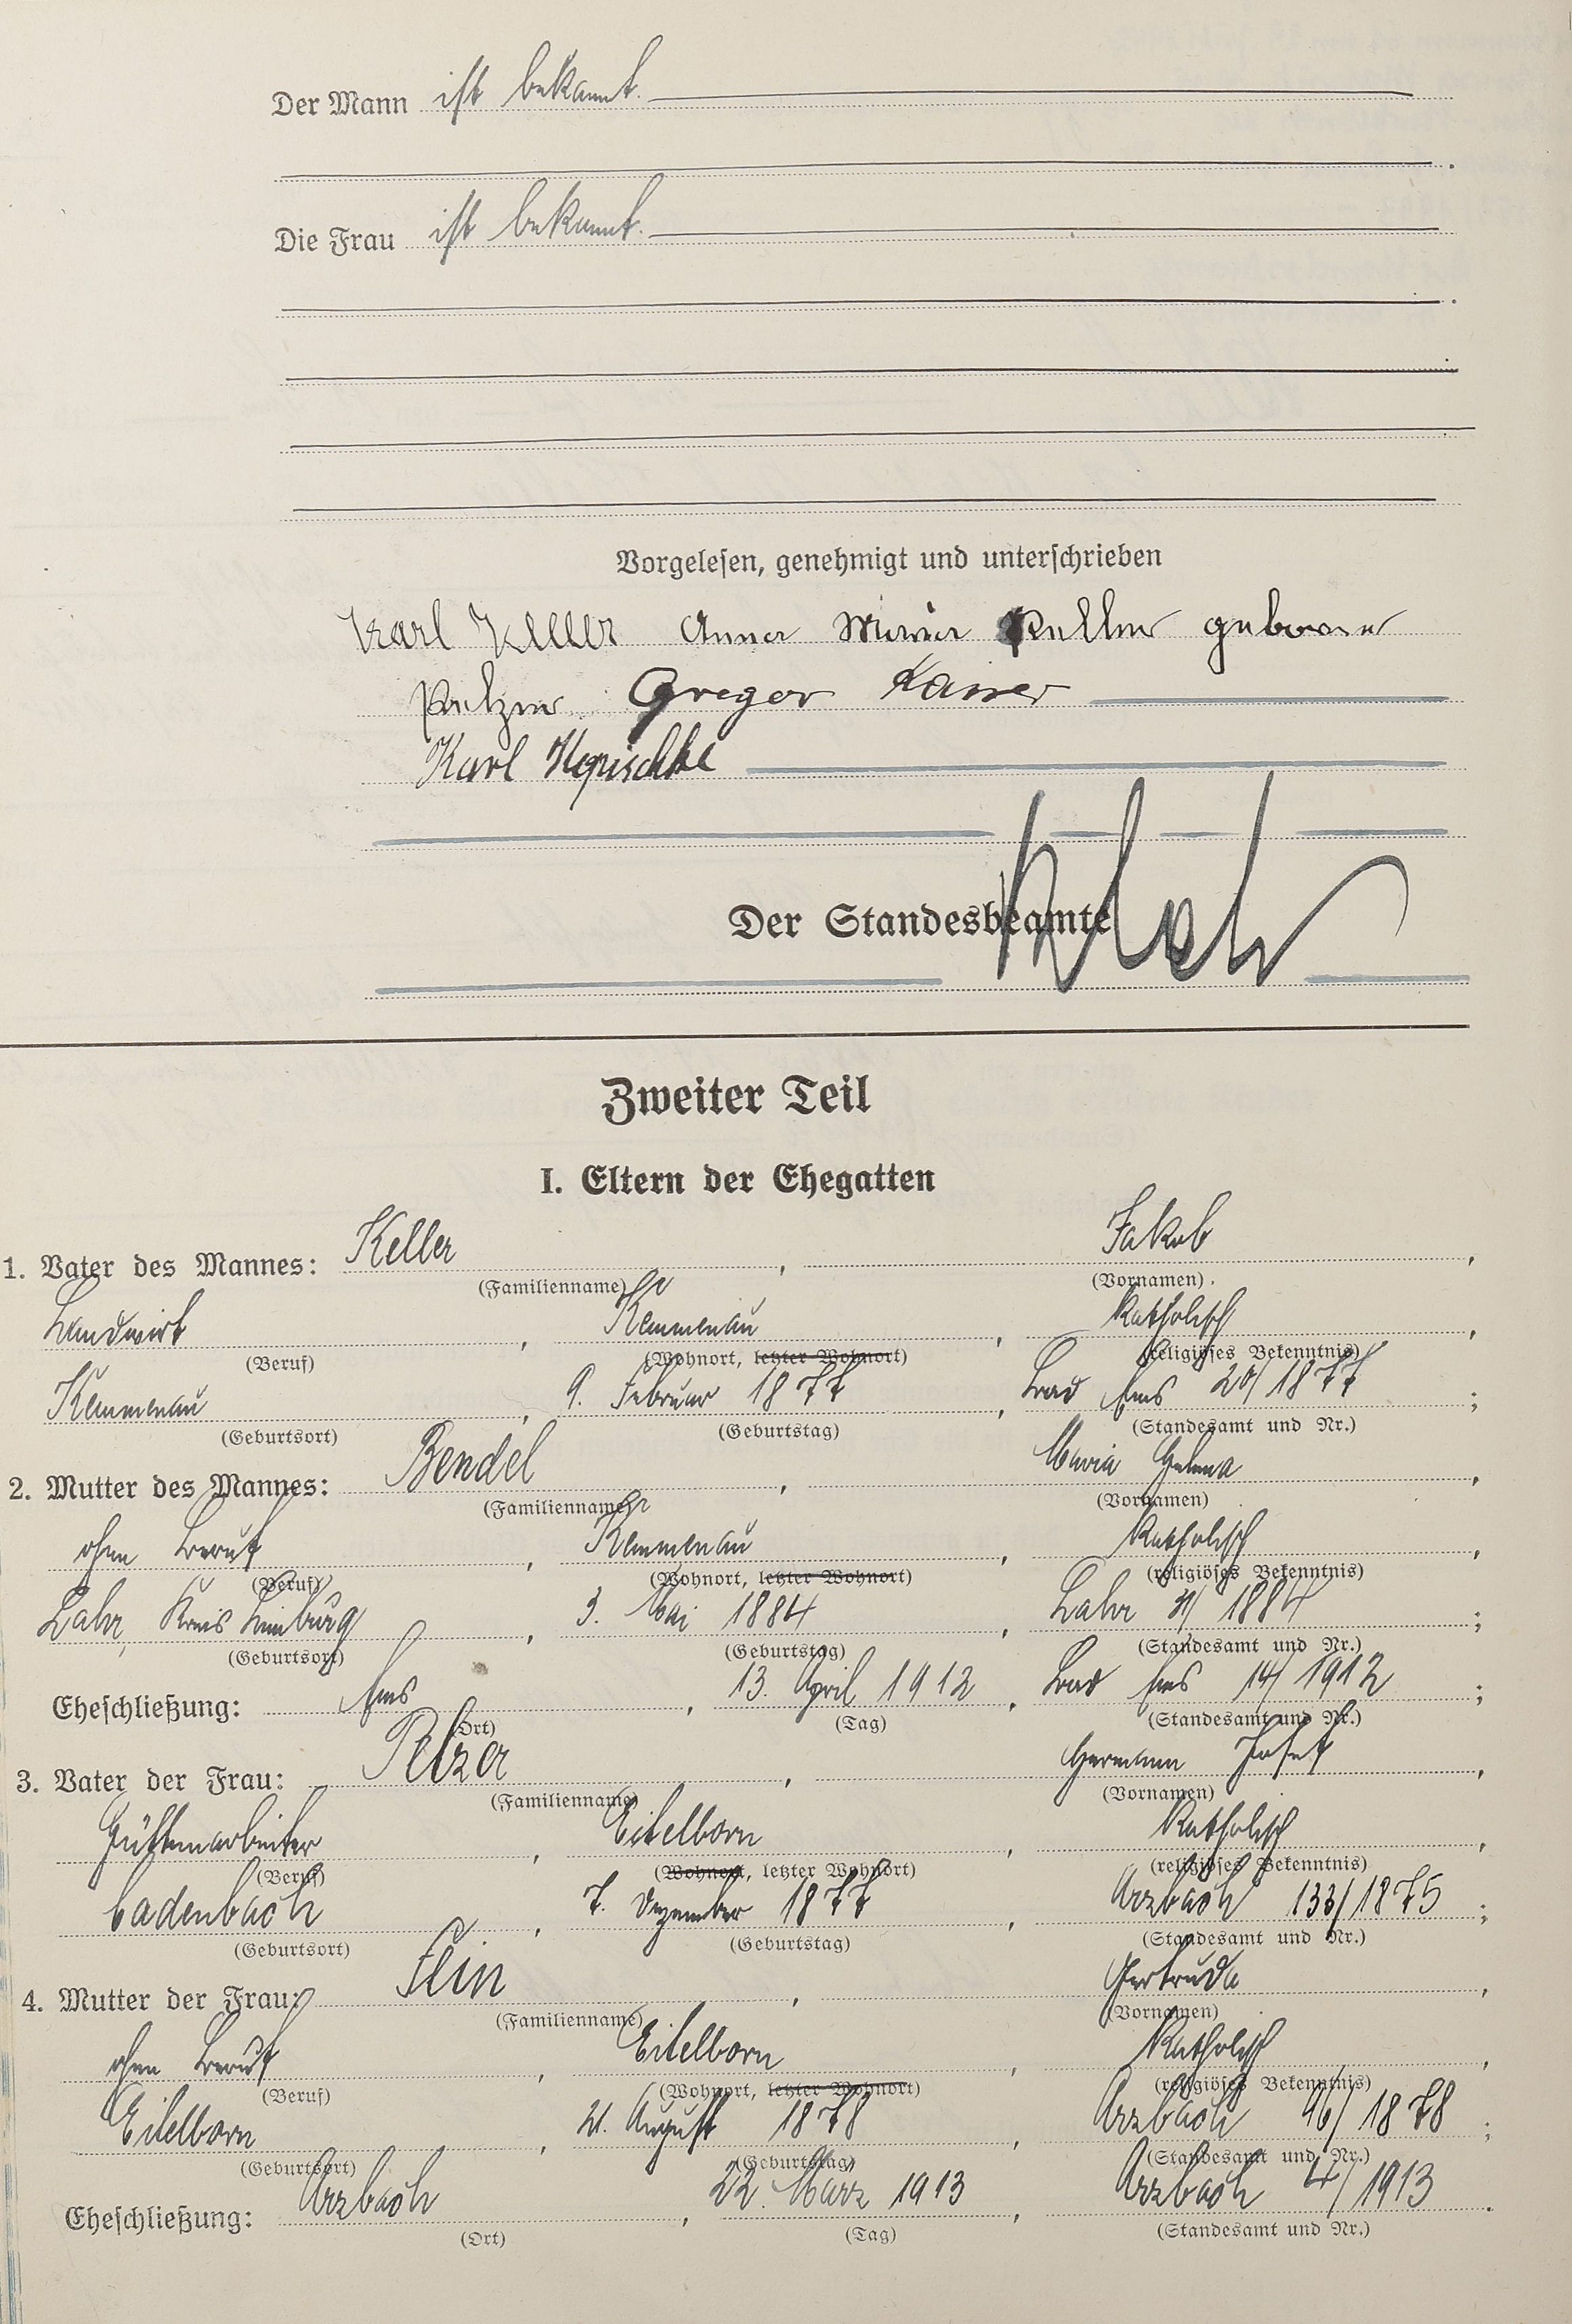 Der Mann ist bekannt.
Die Frau ist bekannt.
Vorgelesen, genehmigt und unterschrieben
Karl Keller Anna Maria Keller geborene
Pelzer. Gregor Kaiser
Karl Kopischke
Der Standesbeamte
Zweiter Teil
I. Eltern der Ehegatten
1. Vater des Mannes: Keller, Jakob,
(Familienname) (Vornamen)
Landwirt, Kemmenau, Katholisch,
(Beruf) (Wohnort, letzter Wohnort) (religiöses Bekenntnis)
Kemmenau, 9. Februar 1877, Bad Ems 20/1877;
(Geburtsort) (Geburtstag) (Standesamt und Nr.)
2. Mutter des Mannes: Bendel, Maria Helena,
(Familienname) (Vornamen)
ohne Beruf, Kemmenau, Katholisch,
(Beruf) (Wohnort, letzter Wohnort) (religiöses Bekenntnis)
Lahr, Kreis Limburg, 3. Mai 1884, Lahr 31/1884;
(Geburtsort) (Geburtstag) (Standesamt und Nr.)
Eheschließung: Ems, 13. April 1912, Bad Ems 14/1912;
(Ort) (Tag) (Standesamt und Nr.)
3. Vater der Frau: Pelzer, Hermann Josef,
(Familienname) (Vornamen)
Hüttenarbeiter, Eitelborn, Katholisch,
(Beruf) (Wohnort, letzter Wohnort) (religiöses Bekenntnis)
Cadenbach, 7. Dezember 1877, Arzbach 133/1875;
(Geburtsort) (Geburtstag) (Standesamt und Nr.)
4. Mutter der Frau: Flin, Gertruda,
(Familienname) (Vornamen)
ohne Beruf, Eitelborn, Katholisch,
(Beruf) (Wohnort, letzter Wohnort) (religiöses Bekenntnis)
Eitelborn, 21. August 1878, Arzbach 96/1878;
(Geburtsort) (Geburtstag) (Standesamt und Nr.)
Eheschließung: Arzbach, 22. März 1913, Arzbach 4/1913.
(Ort) (Tag) (Standesamt und Nr.)